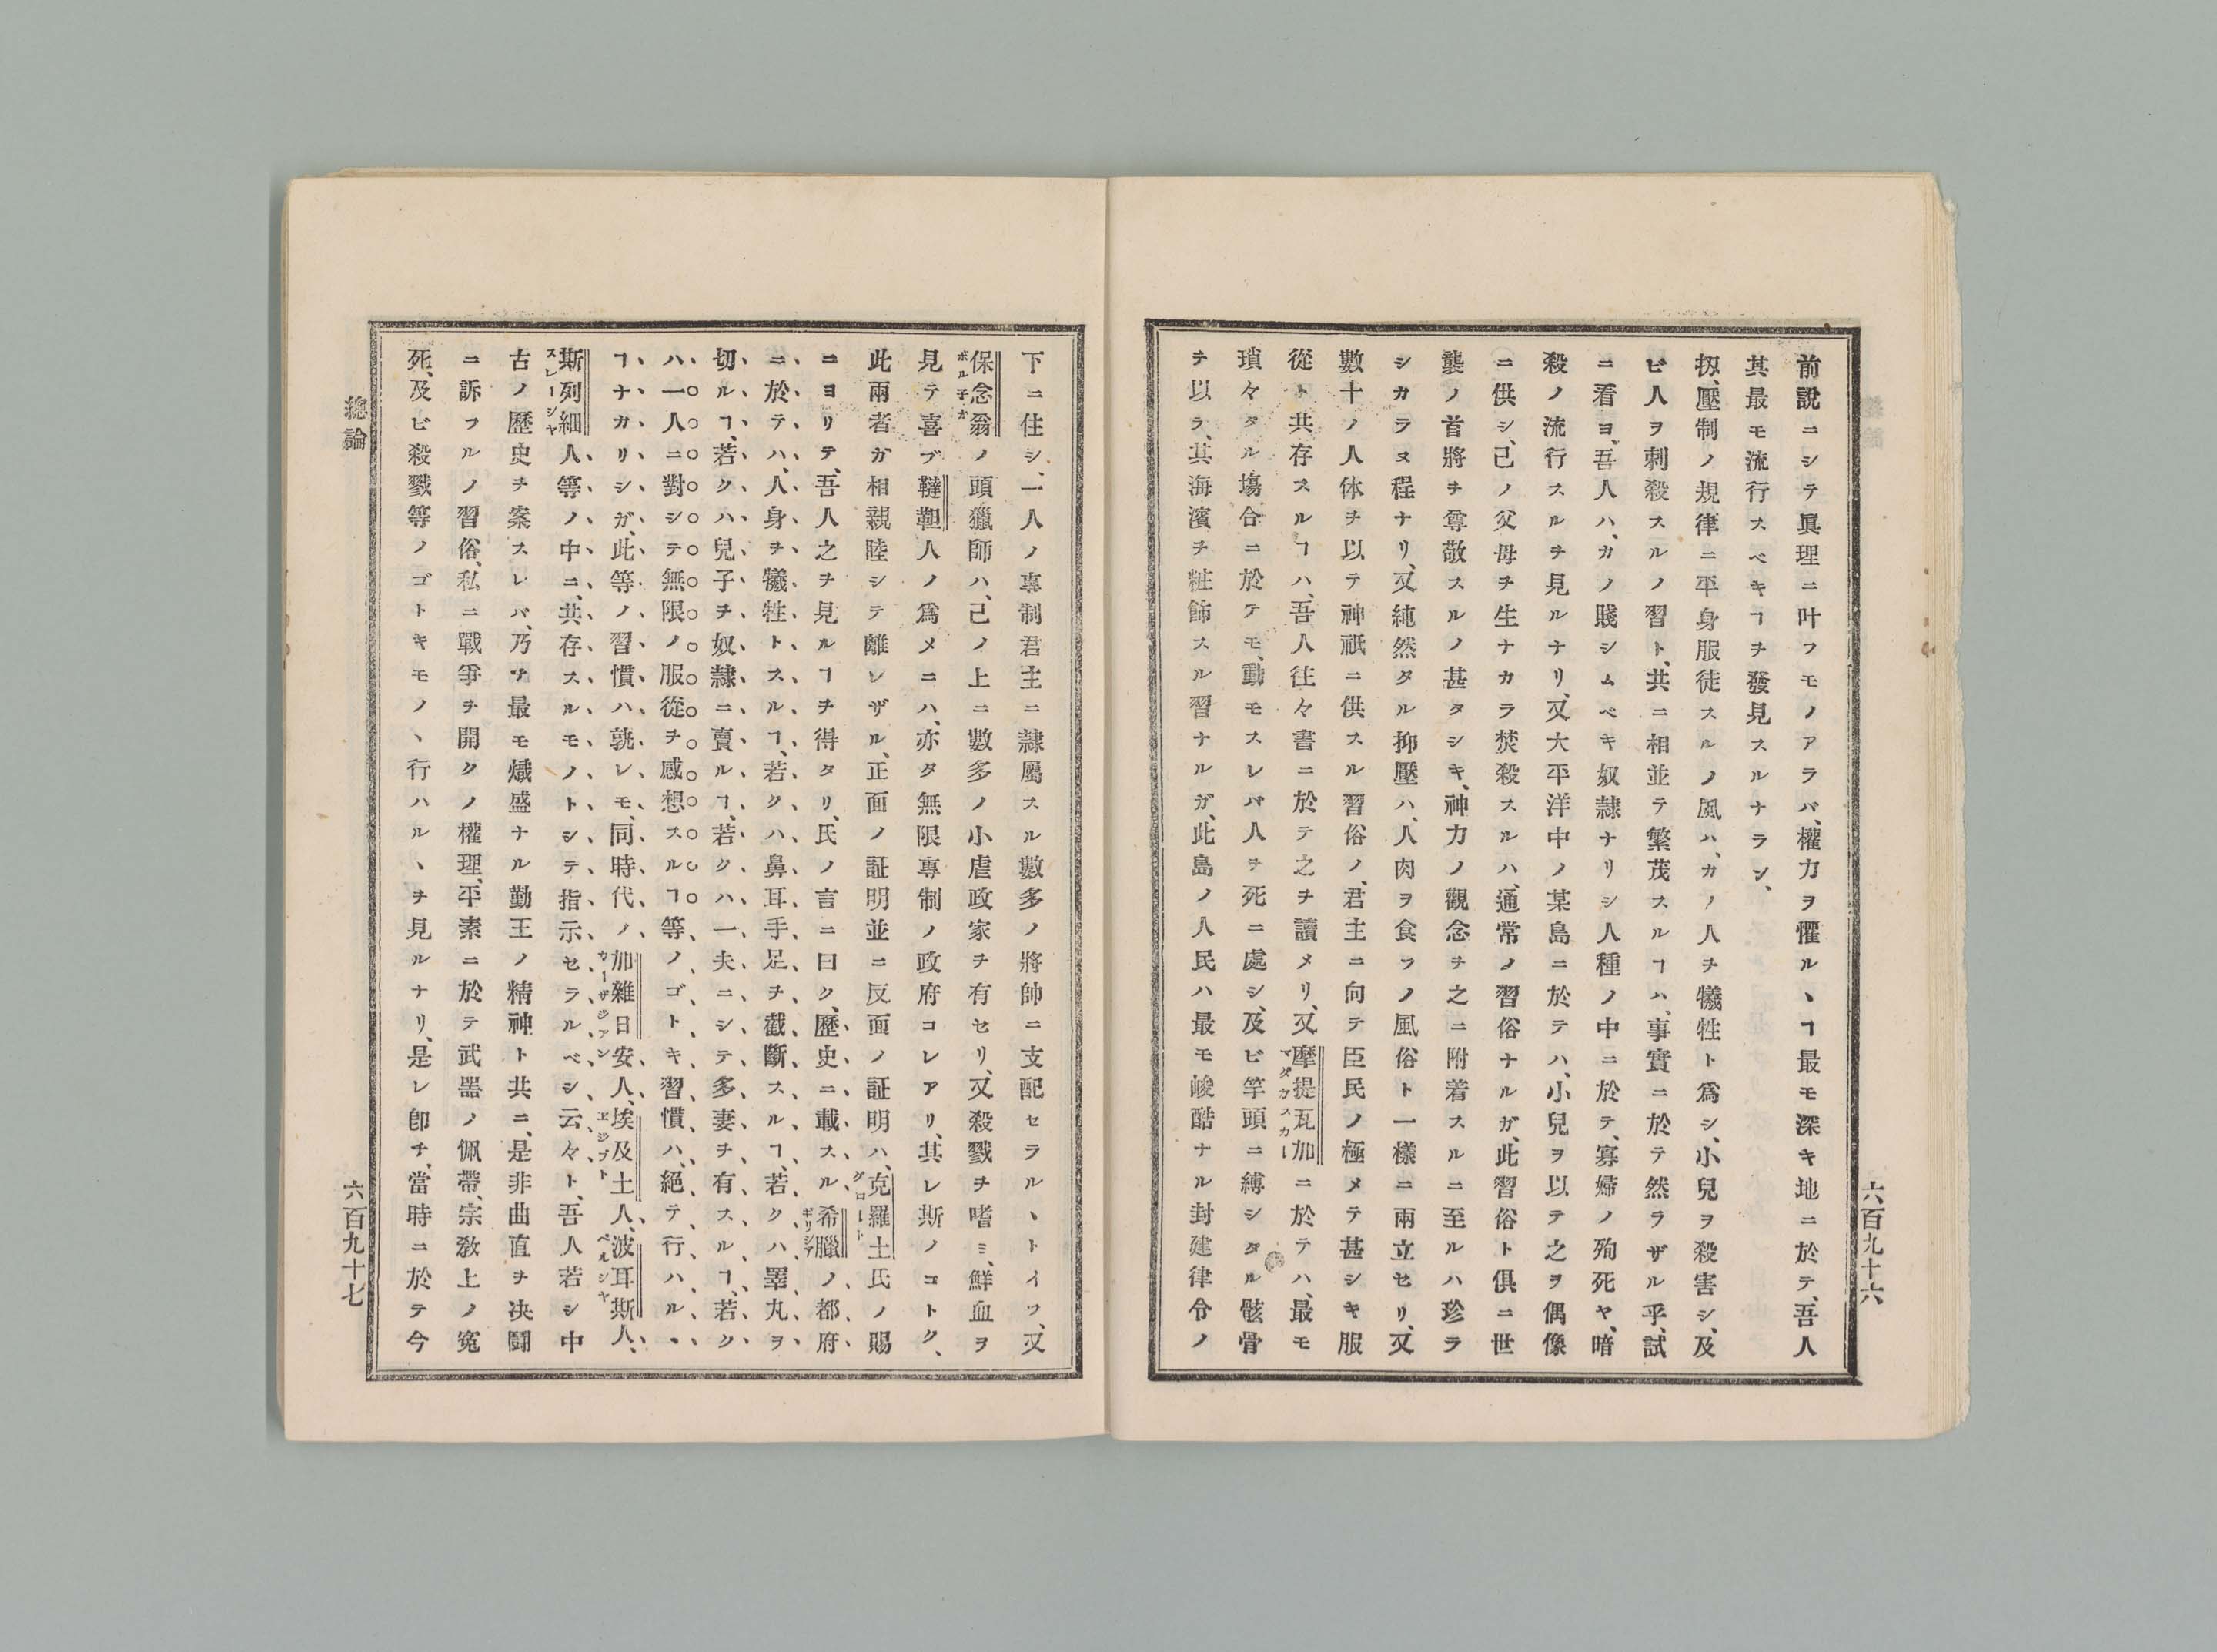 前說ニシテ眞理ニ叶フモノアラバ、權力ヲ懼ルヽヿ最モ深キ地ニ於テ、吾人
其最モ流行スベキヿヲ發見スルナラン、
扨、壓制ノ規律ニ平身服徒スルノ風ハ、カノ人ヲ犧牲ト爲シ、小兒ヲ殺害シ、及
ビ人ヲ刺殺スルノ習ト、共ニ相並テ繁茂スルヿハ、事實ニ於テ然ラザル乎、試
ニ看ヨ、吾人ハ、カノ賤シムベキ奴隸ナリシ人種ノ中ニ於テ、寡婦ノ殉死ヤ、暗
殺ノ流行スルヲ見ルナリ、又大平洋中ノ某島ニ於テハ、小兒ヲ以テ之ヲ偶像
ニ供シ、己ノ父母ヲ生ナカラ焚殺スルハ、通常ノ習俗ナルガ、此習俗ト俱ニ世
襲ノ首將ヲ尊敬スルノ甚タシキ、神力ノ觀念ヲ之ニ附着スルニ至ルハ珍ラ
シカラヌ程ナリ、又純然タル抑壓ハ、人肉ヲ食フノ風俗ト一樣ニ兩立セリ、又
數十ノ人体ヲ以テ神祇ニ供スル習俗ノ、君主ニ向テ臣民ノ極メテ甚シキ服
從ト共存スルヿハ、吾人往々書ニ於テ之ヲ讀メリ、又摩提瓦加ニ於テハ、最モ
マダガスカー
瑣々タル塲合ニ於テモ、動モスレバ人ヲ死ニ處シ、及ビ竿頭ニ縛シタル骸骨
テ以ラ、其海濱ヲ粧飾スル習ナルガ、此島ノ人民ハ最モ峻酷ナル封建律令ノ
六百九十六
下ニ住シ、一人ノ專制君主ニ隸屬スル數多ノ將帥ニ支配セラルヽトイフ、又
保念翁ノ頭獵師ハ、己ノ上ニ數多ノ小虐政家ヲ有セリ、又殺戮ヲ嗜ミ、鮮血ヲ
ボル子オ
見テ喜ブ韃靼人ノ爲メニハ、亦タ無限專制ノ政府コレアリ、其レ斯ノコトク、
此兩者ガ相親睦シテ離レザル、正面ノ証明並ニ反面ノ証明ハ、克羅土氏ノ賜
グロート
ニヨリテ、吾人之ヲ見ルヿヲ得タリ、氏ノ言ニ曰ク、歷史ニ載スル希臘ノ都府
ギリシア
ニ於テハ、人身ヲ犧牲トスルヿ、若クハ鼻耳手足ヲ截斷スルヿ、若クハ睪丸ヲ
切ルヿ、若クハ兒子ヲ奴隸ニ賣ルヿ、若クハ一夫ニシテ多妻ヲ有スルヿ、若ク
ハ一人ニ對シテ無限ノ服從ヲ感想スルヿ等ノゴトキ習慣ハ、絕テ行ハルヽ
ヿナカリシガ、此等ノ習慣ハ孰レモ、同時代ノ加雜日安人、埃及土人、波耳斯人、
カーザジアン エジプト ペルシヤ
斯列細人等ノ中ニ、共存スルモノトシテ指示セラルベシ云々ト、吾人若シ中
スレーシヤ
古ノ歷史ヲ案スレバ、乃ナ最モ熾盛ナル勤王ノ精神ト共ニ、是非曲直ヲ决鬪
ニ訴フルノ習俗、私ニ戰爭ヲ開クノ權理、平素ニ於テ武噐ノ佩帶、宗敎上ノ冤
死、及ビ殺戮等ノゴトキモノヽ行ハルヽヲ見ルナリ、是レ卽チ、當時ニ於テ今
總論
六百九十七